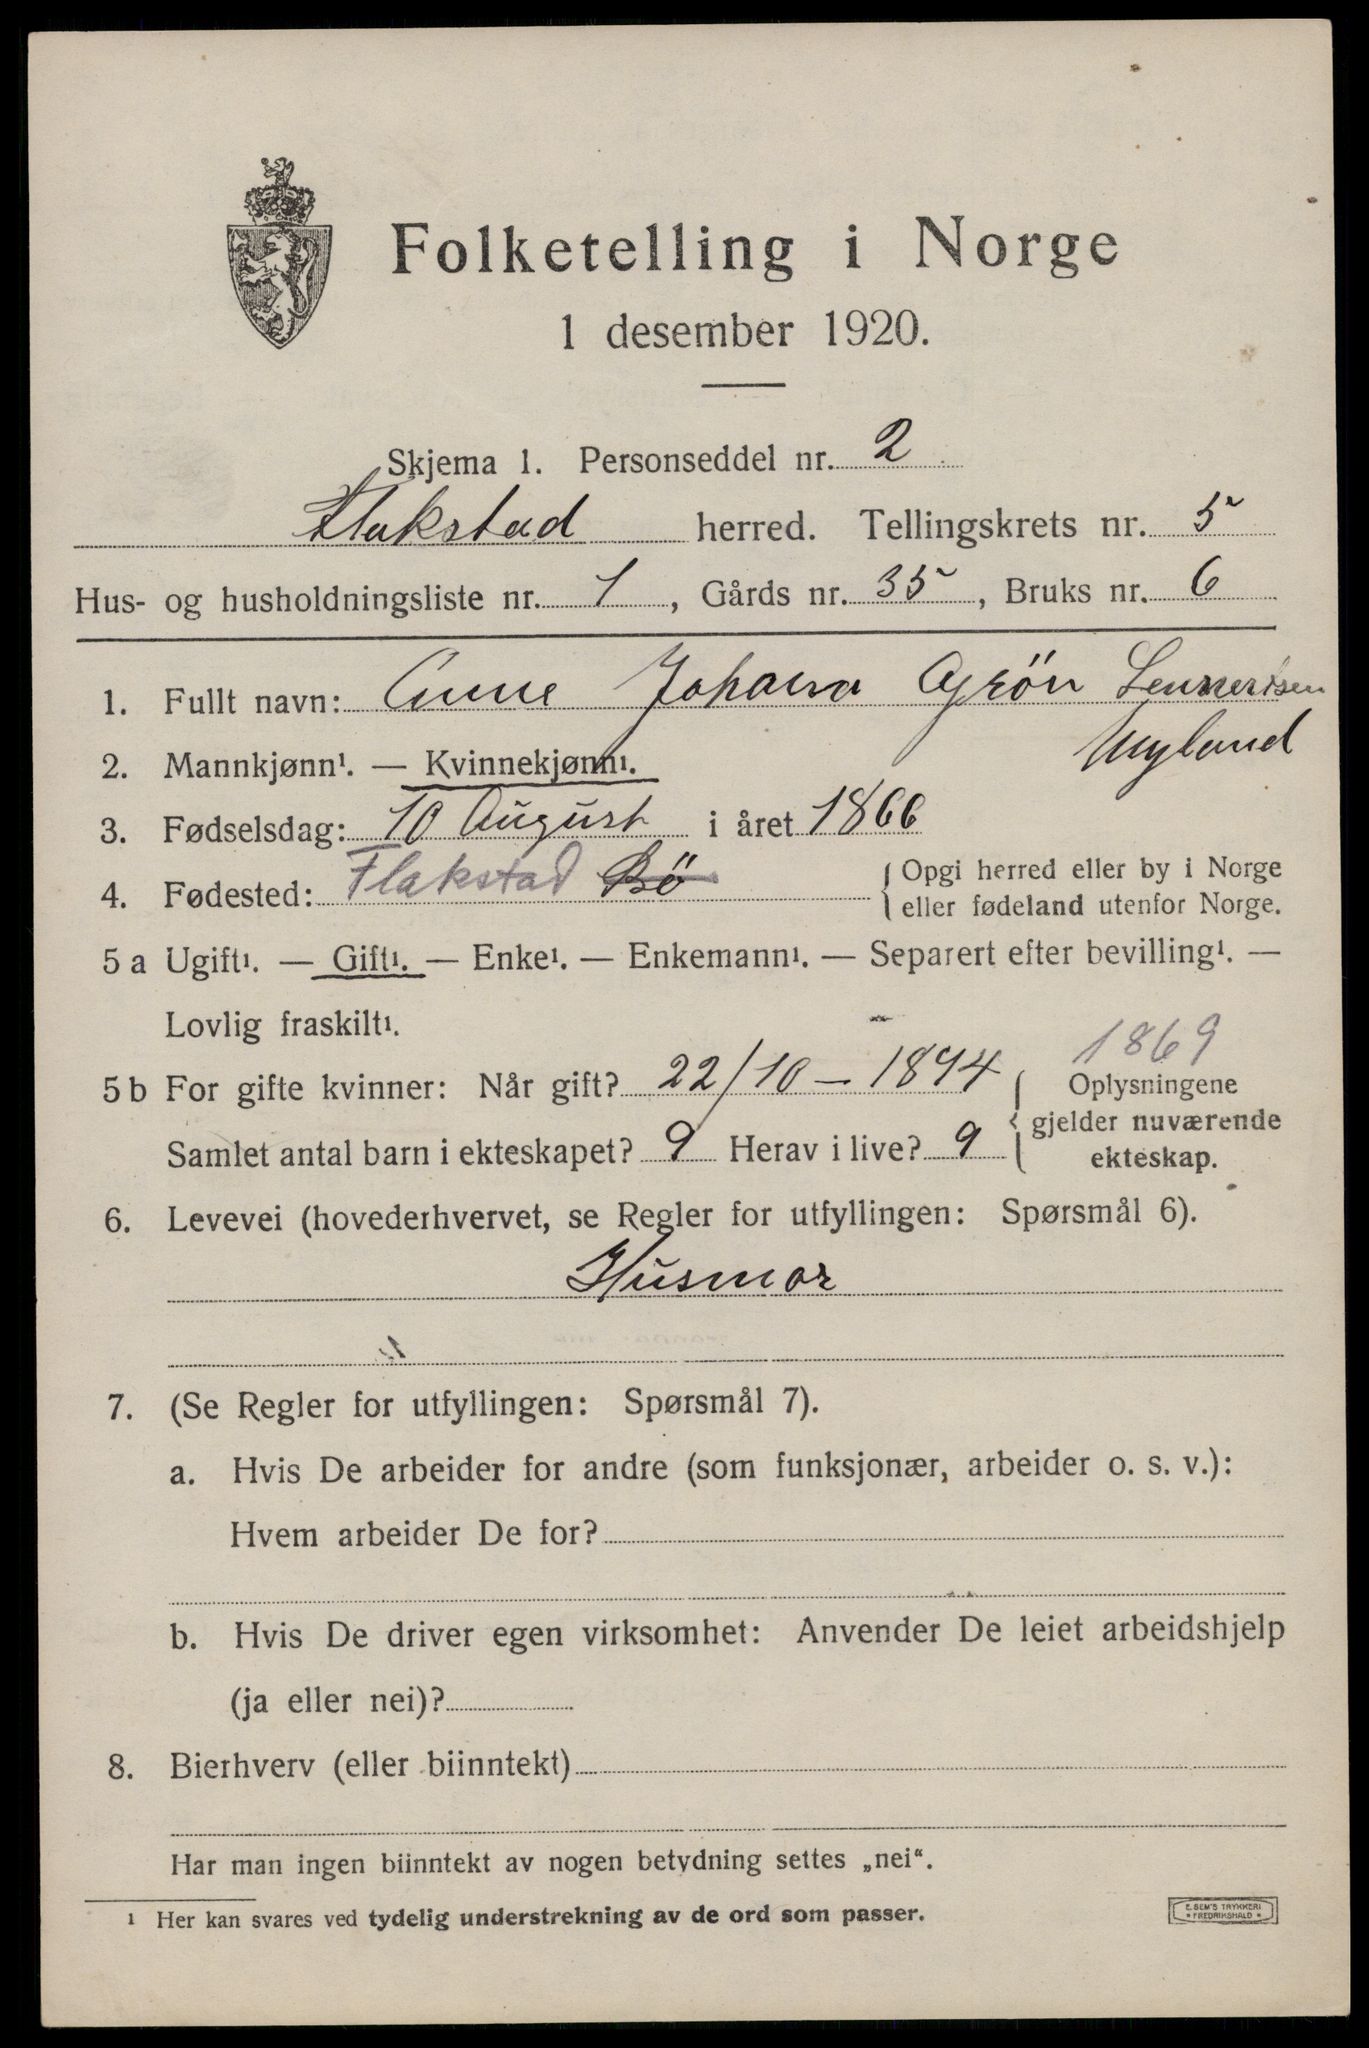 Folketelling i Norge
1 desember 1920.
Skjema 1. Personseddel nr. 2
Flakstad herred. Tellingskrets nr. 5
Hus- og husholdningsliste nr. 1, Gårds nr. 35, Bruks nr. 6
1. Fullt navn: Anne Johana Grön Lennertsen
Myland
2. Mannkjønn¹. — Kvinnekjønn¹.
3. Fødselsdag: 10 August i året 1866
4. Fødested: Flakstad Bö
Opgi herred eller by i Norge
eller fødeland utenfor Norge.
5 a Ugift¹. — Gift¹. — Enke¹. — Enkemann¹. — Separert efter bevilling¹. —
Lovlig fraskilt¹.
1869
5 b For gifte kvinner: Når gift? 22/10 – 1894
Samlet antal barn i ekteskapet? 9 Herav i live? 9
Oplysningene
gjelder nuværende
ekteskap.
6. Levevei (hovederhvervet, se Regler for utfyllingen: Spørsmål 6).
Husmor
7. (Se Regler for utfyllingen: Spørsmål 7).
a. Hvis De arbeider for andre (som funksjonær, arbeider o. s. v.):
Hvem arbeider De for?
b. Hvis De driver egen virksomhet: Anvender De leiet arbeidshjelp
(ja eller nei)?
8. Bierhverv (eller biinntekt)
Har man ingen biinntekt av nogen betydning settes „nei“.
¹ Her kan svares ved tydelig understrekning av de ord som passer.
E. SEM'S TRYKKERI
* FREDRIKSHALD *